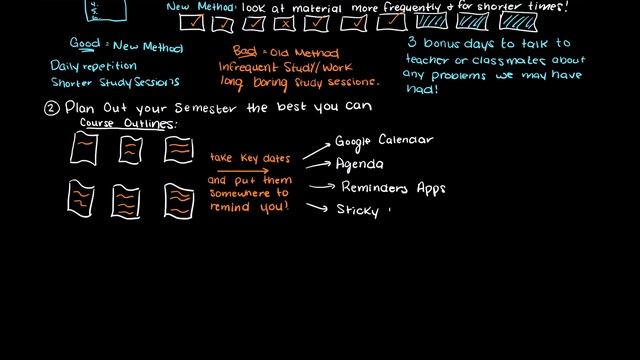 4.
5.
6.
New Method: look at material more frequently & for shorter times!
Good = New Method
Daily repetition
Shorter Study Sessions
Bad = Old Method
Infrequent Study/Work
long boring study sessions.
3 bonus days to talk to
teacher or classmates about
any problems we may have
had!
② Plan Out your Semester the best you can
Course Outlines:
take key dates
and put them
somewhere to
remind you!
Google Calendar
Agenda
Reminders Apps
Sticky